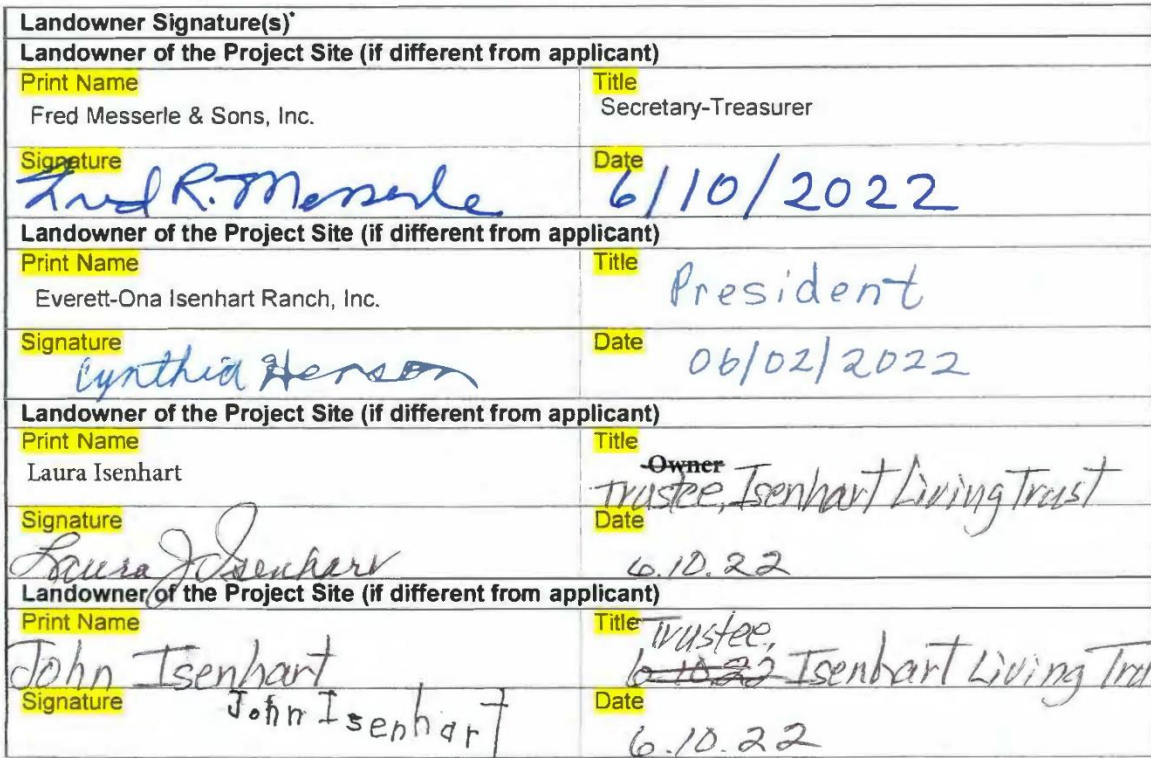 Landowner Signature(s)*
Landowner of the Project Site (if different from applicant)
Print Name Title
Fred Messerle & Sons, Inc. Secretary-Treasurer
Signature Date
Fred R. Messerle 6/10/2022
Landowner of the Project Site (if different from applicant)
Print Name Title
Everett-Ona Isenhart Ranch, Inc. President
Signature Date
Cynthia Henson 06/02/2022
Landowner of the Project Site (if different from applicant)
Print Name Title
Laura Isenhart Owner
Trustee, Isenhart Living Trust
Signature Date
Laura J Isenhart 6.10.22
Landowner of the Project Site (if different from applicant)
Print Name Title Trustee,
John Isenhart 6.10.22 Isenhart Living Tru
Signature Date
John Isenhart 6.10.22